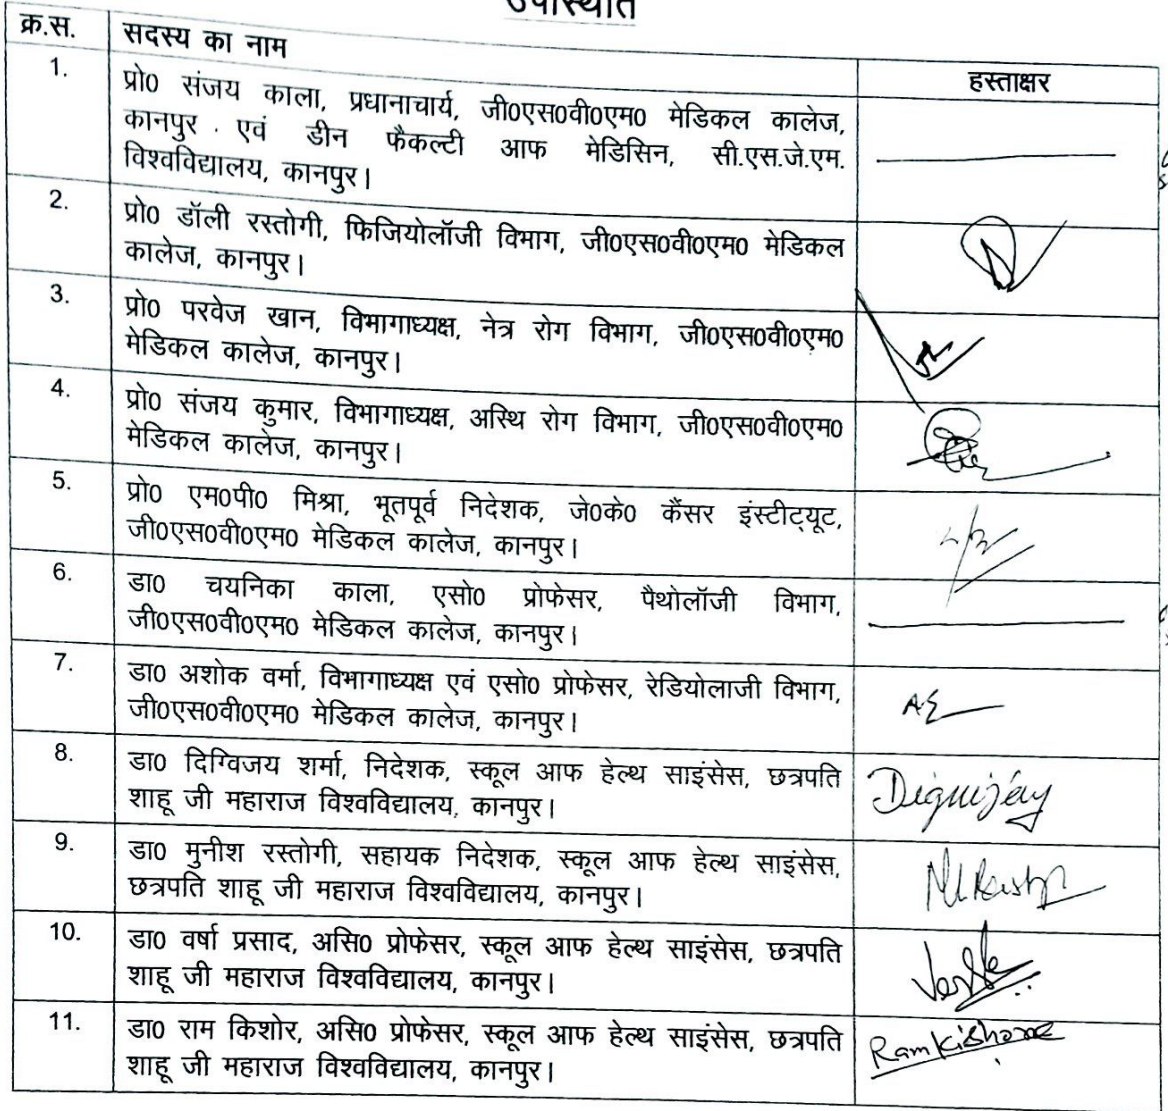 उपस्थिति
क्र.स. सदस्य का नाम हस्ताक्षर
1. प्रो0 संजय काला, प्रधानाचार्य, जी0एस0वी0एम0 मेडिकल कालेज,
कानपुर एवं डीन फैकल्टी आफ मेडिसिन, सी.एस.जे.एम.
विश्वविद्यालय, कानपुर।
2. प्रो0 डॉली रस्तोगी, फिजियोलॉजी विभाग, जी0एस0वी0एम0 मेडिकल
कालेज, कानपुर।
3. प्रो0 परवेज खान, विभागाध्यक्ष, नेत्र रोग विभाग, जी0एस0वी0एम0
मेडिकल कालेज, कानपुर।
4. प्रो0 संजय कुमार, विभागाध्यक्ष, अस्थि रोग विभाग, जी0एस0वी0एम0
मेडिकल कालेज, कानपुर।
5. प्रो0 एम0पी0 मिश्रा, भूतपूर्व निदेशक, जे0के0 कैंसर इंस्टीट्यूट,
जी0एस0वी0एम0 मेडिकल कालेज, कानपुर।
6. डा0 चयनिका काला, एसो0 प्रोफेसर, पैथोलॉजी विभाग,
जी0एस0वी0एम0 मेडिकल कालेज, कानपुर।
7. डा0 अशोक वर्मा, विभागाध्यक्ष एवं एसो0 प्रोफेसर, रेडियोलाजी विभाग,
जी0एस0वी0एम0 मेडिकल कालेज, कानपुर।
8. डा0 दिग्विजय शर्मा, निदेशक, स्कूल आफ हेल्थ साइंसेस, छत्रपति
शाहू जी महाराज विश्वविद्यालय, कानपुर।
Diguijay
9. डा0 मुनीश रस्तोगी, सहायक निदेशक, स्कूल आफ हेल्थ साइंसेस,
छत्रपति शाहू जी महाराज विश्वविद्यालय, कानपुर।
10. डा0 वर्षा प्रसाद, असि0 प्रोफेसर, स्कूल आफ हेल्थ साइंसेस, छत्रपति
शाहू जी महाराज विश्वविद्यालय, कानपुर।
11. डा0 राम किशोर, असि0 प्रोफेसर, स्कूल आफ हेल्थ साइंसेस, छत्रपति
शाहू जी महाराज विश्वविद्यालय, कानपुर।
Ramkishore